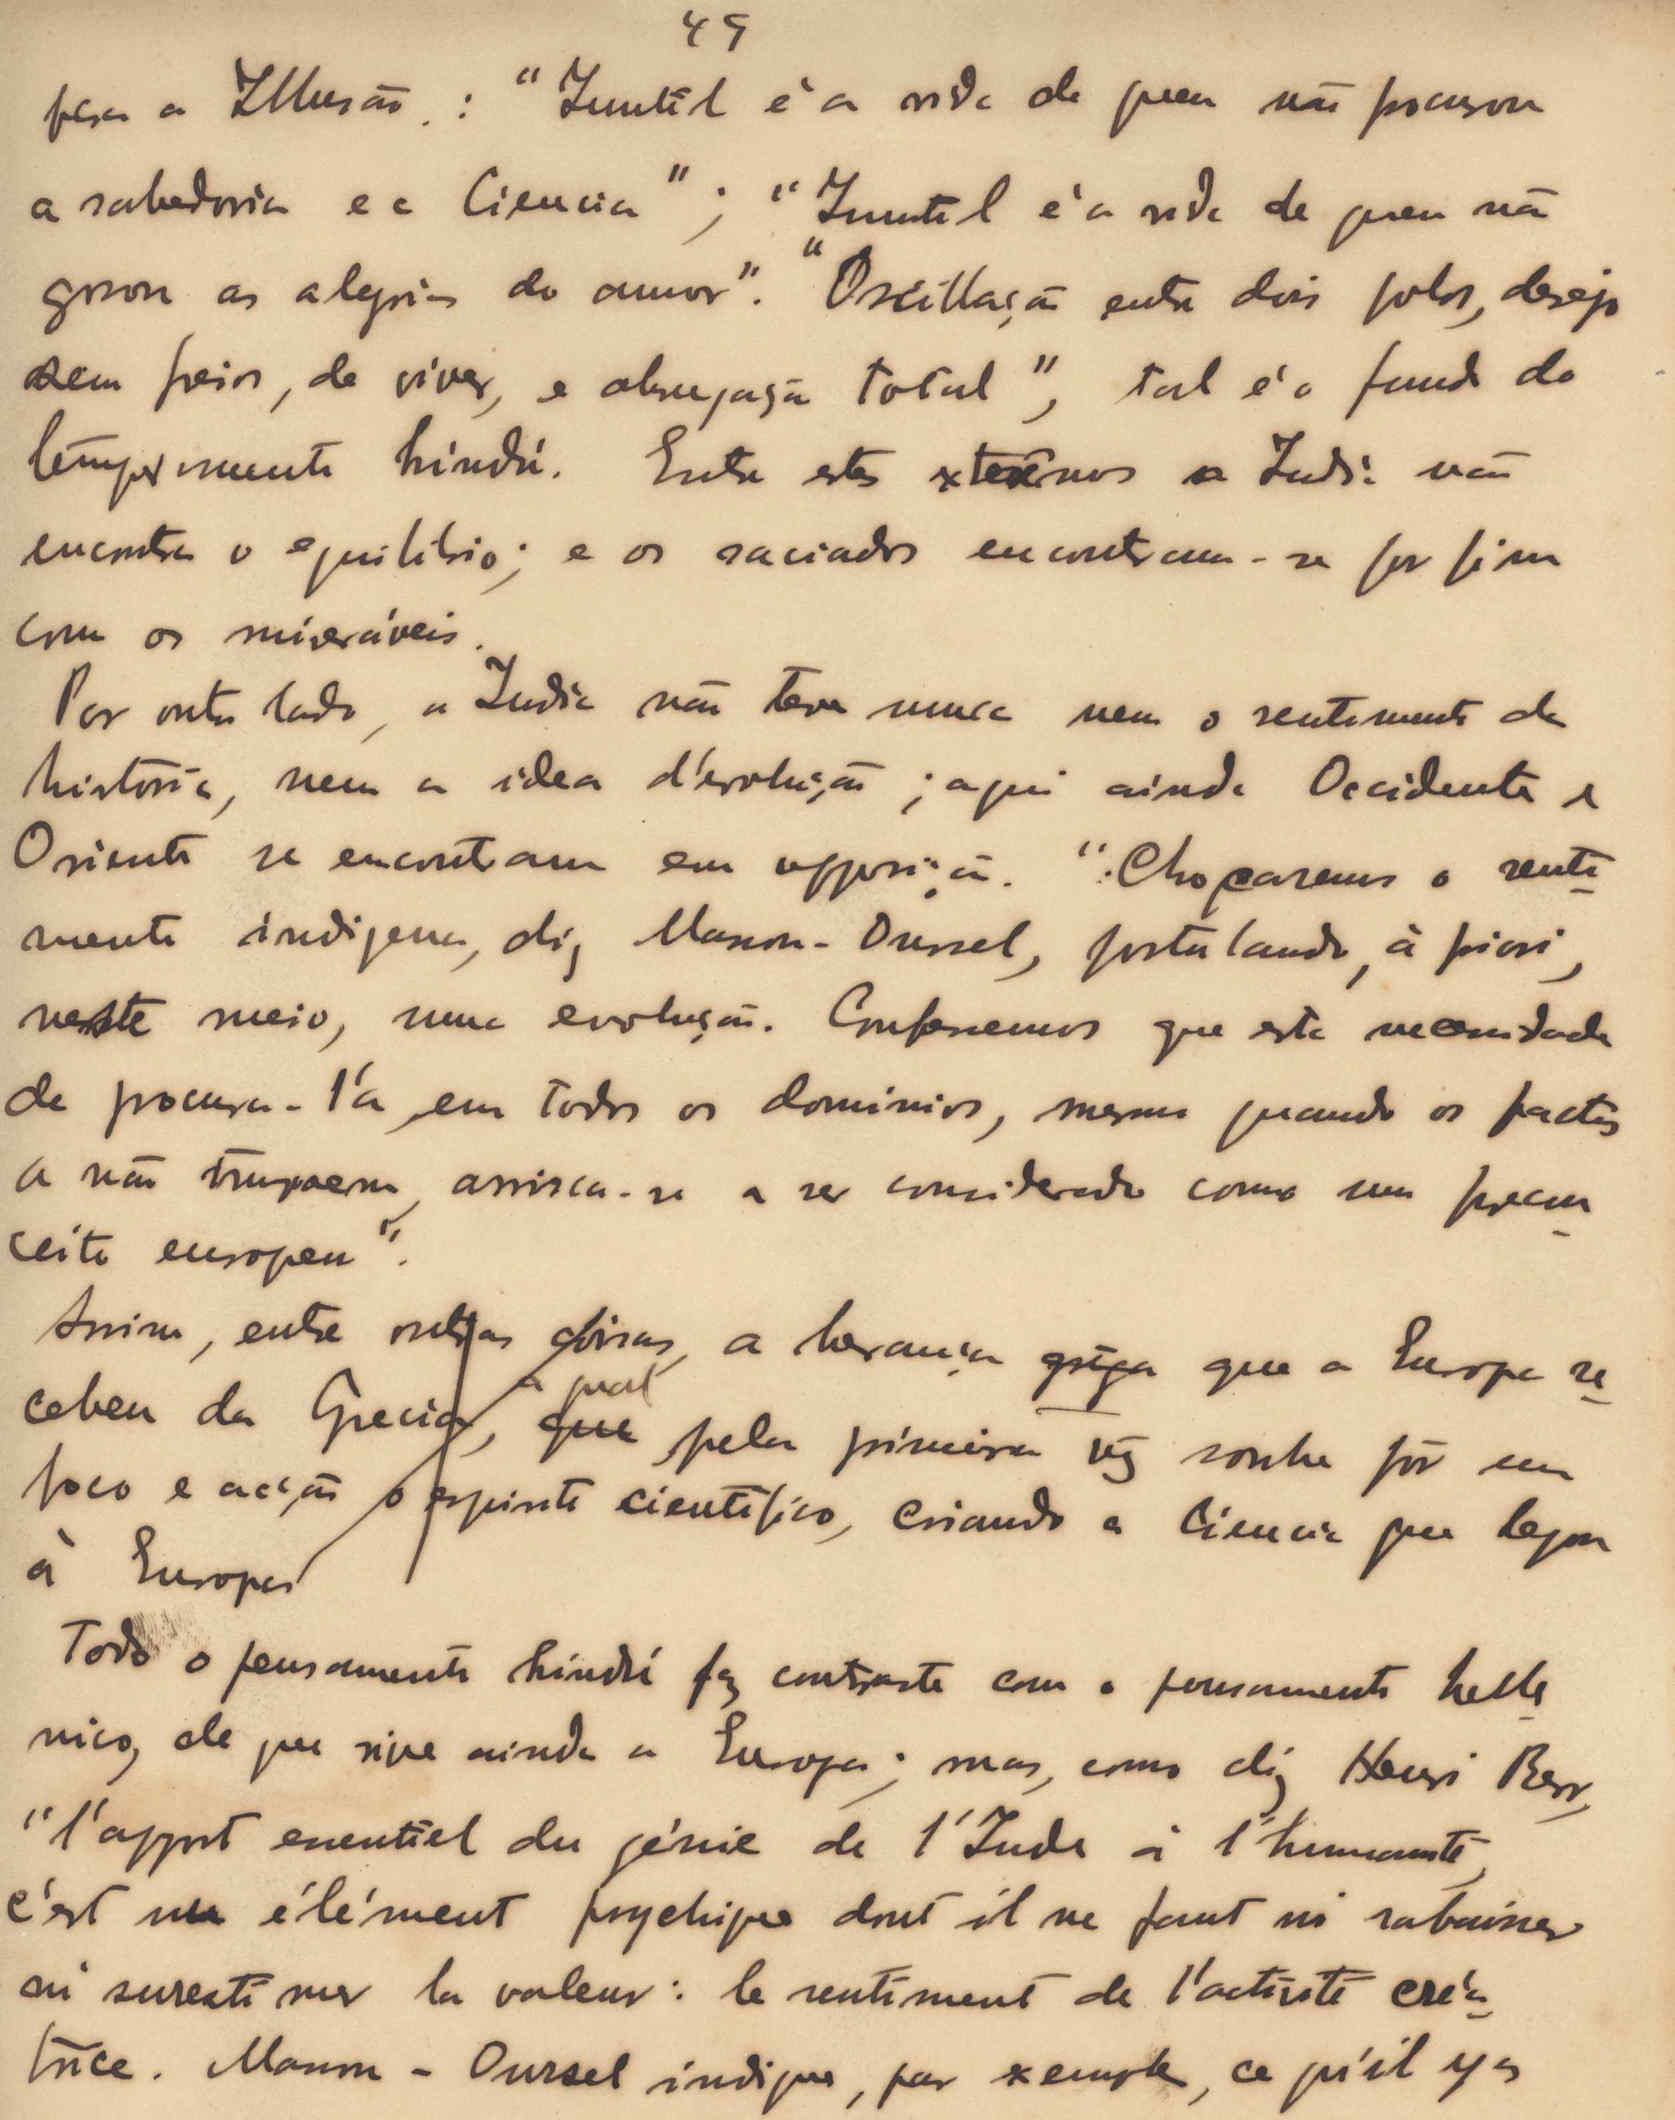 49
para a Illusão. : "Inutil é a vida de quem não procurou
a sabedoria e a Ciencia"; "Inutil é a vida de quem não
gosou as alegrias do amor". "Oscillação entre dois polos, desejo
sem freios, de viver, e abnegação total", tal é o fundo do
temperamento hindú. Entre estes extremos a India não
encontra o equilibrio; e os saciados encontram-se por fim
com os miseráveis.
Por outro lado, a India não teve nunca nem o sentimento da
história, nem a idea d'evolução; aqui ainda Occidente e
Oriente se encontram em opposição. "Chocaremos o senti-
mento indigena, diz Masson-Oursel, postulando, à priori,
neste meio, uma evolução. Confessemos que esta necessidade
de procura-l'a, em todos os dominios, mesmo quando os factos
a não impoem, arrisca-se a ser considerado como um precon-
ceito europeu".
Assim, entre outras coisas, a herança grega que a Europa re-
cebeu da Grecia, que a qual pela primeira vez soube pôr em
foco e acção o espirito cientifico, criando a Ciencia que legou
à Europa
Todo o pensamento hindú faz contraste com o pensamento helle-
nico, de que vive ainda a Europa; mas, como diz Henri Berr,
"l'apport essentiel du génie de l'Inde à l'humanité,
c'est un élément psychique dont il ne faut ni rabaisser
ni surestimer la valeur: le sentiment de l'activité créa-
trice. Masson-Oursel indique, par exemple, ce qu'il y a